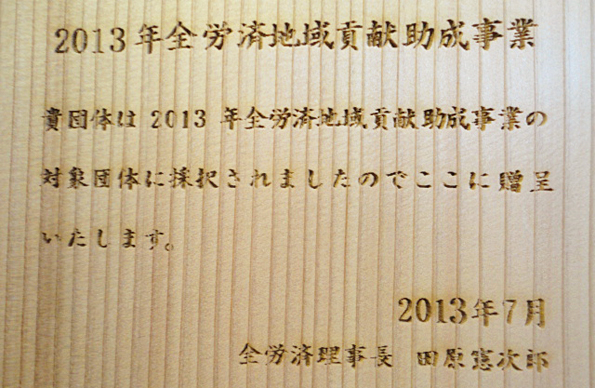 2013年全労済地域貢献助成事業
貴団体は 2013 年全労済地域貢献助成事業の
対象団体に採択されましたのでここに贈呈
いたします。
2013年7月
全労済理事長 田原憲次郎